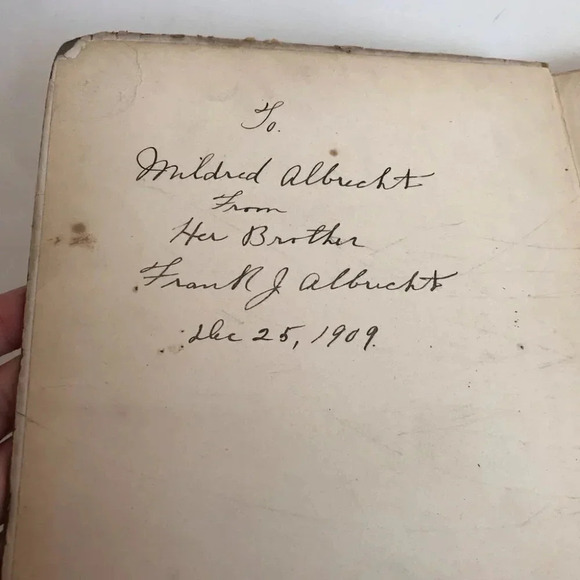 To.
Mildred Albrecht
From
Her Brother
Frank J Albrecht
Dec 25, 1909.